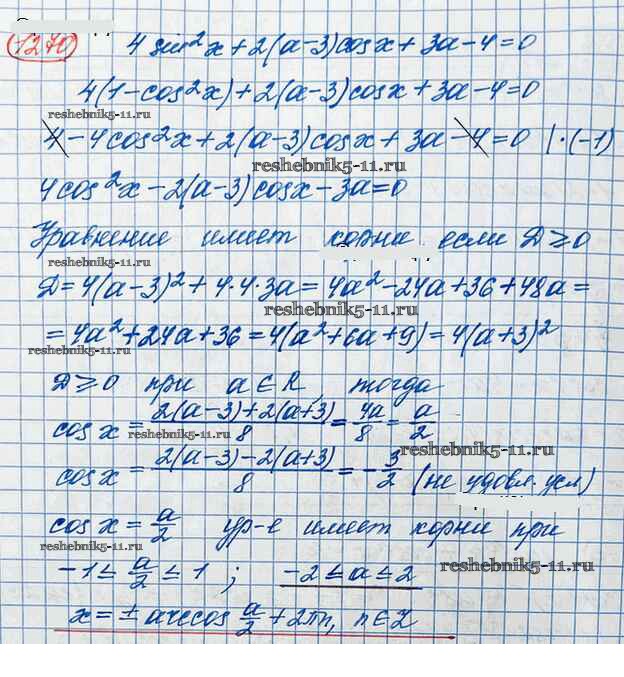 1270
4 sin²x + 2(a-3)cosx + 3a - 4 = 0
4(1-cos²x) + 2(a-3)cosx + 3a - 4 = 0
reshebnik5-11.ru
4 - 4cos²x + 2(a-3)cosx + 3a - 4 = 0 |·(-1)
reshebnik5-11.ru
4cos²x - 2(a-3)cosx - 3a = 0
Уравнение имеет корни если D ≥ 0
reshebnik5-11.ru
D = 4(a-3)² + 4·4·3a = 4a² - 24a + 36 + 48a =
reshebnik5-11.ru
= 4a² + 24a + 36 = 4(a² + 6a + 9) = 4(a+3)²
reshebnik5-11.ru
D ≥ 0 при a ∈ R, тогда
cosx = (2(a-3) + 2(a+3))/8 = 4a/8 = a/2
reshebnik5-11.ru
reshebnik5-11.ru
cosx = (2(a-3) - 2(a+3))/8 = -3/2 (не удовл. усл)
reshebnik5-11.ru
cosx = a/2 ур-е имеет корни при
reshebnik5-11.ru
-1 ≤ a/2 ≤ 1 ; -2 ≤ a ≤ 2
reshebnik5-11.ru
x = ± arccos a/2 + 2πn, n ∈ Z